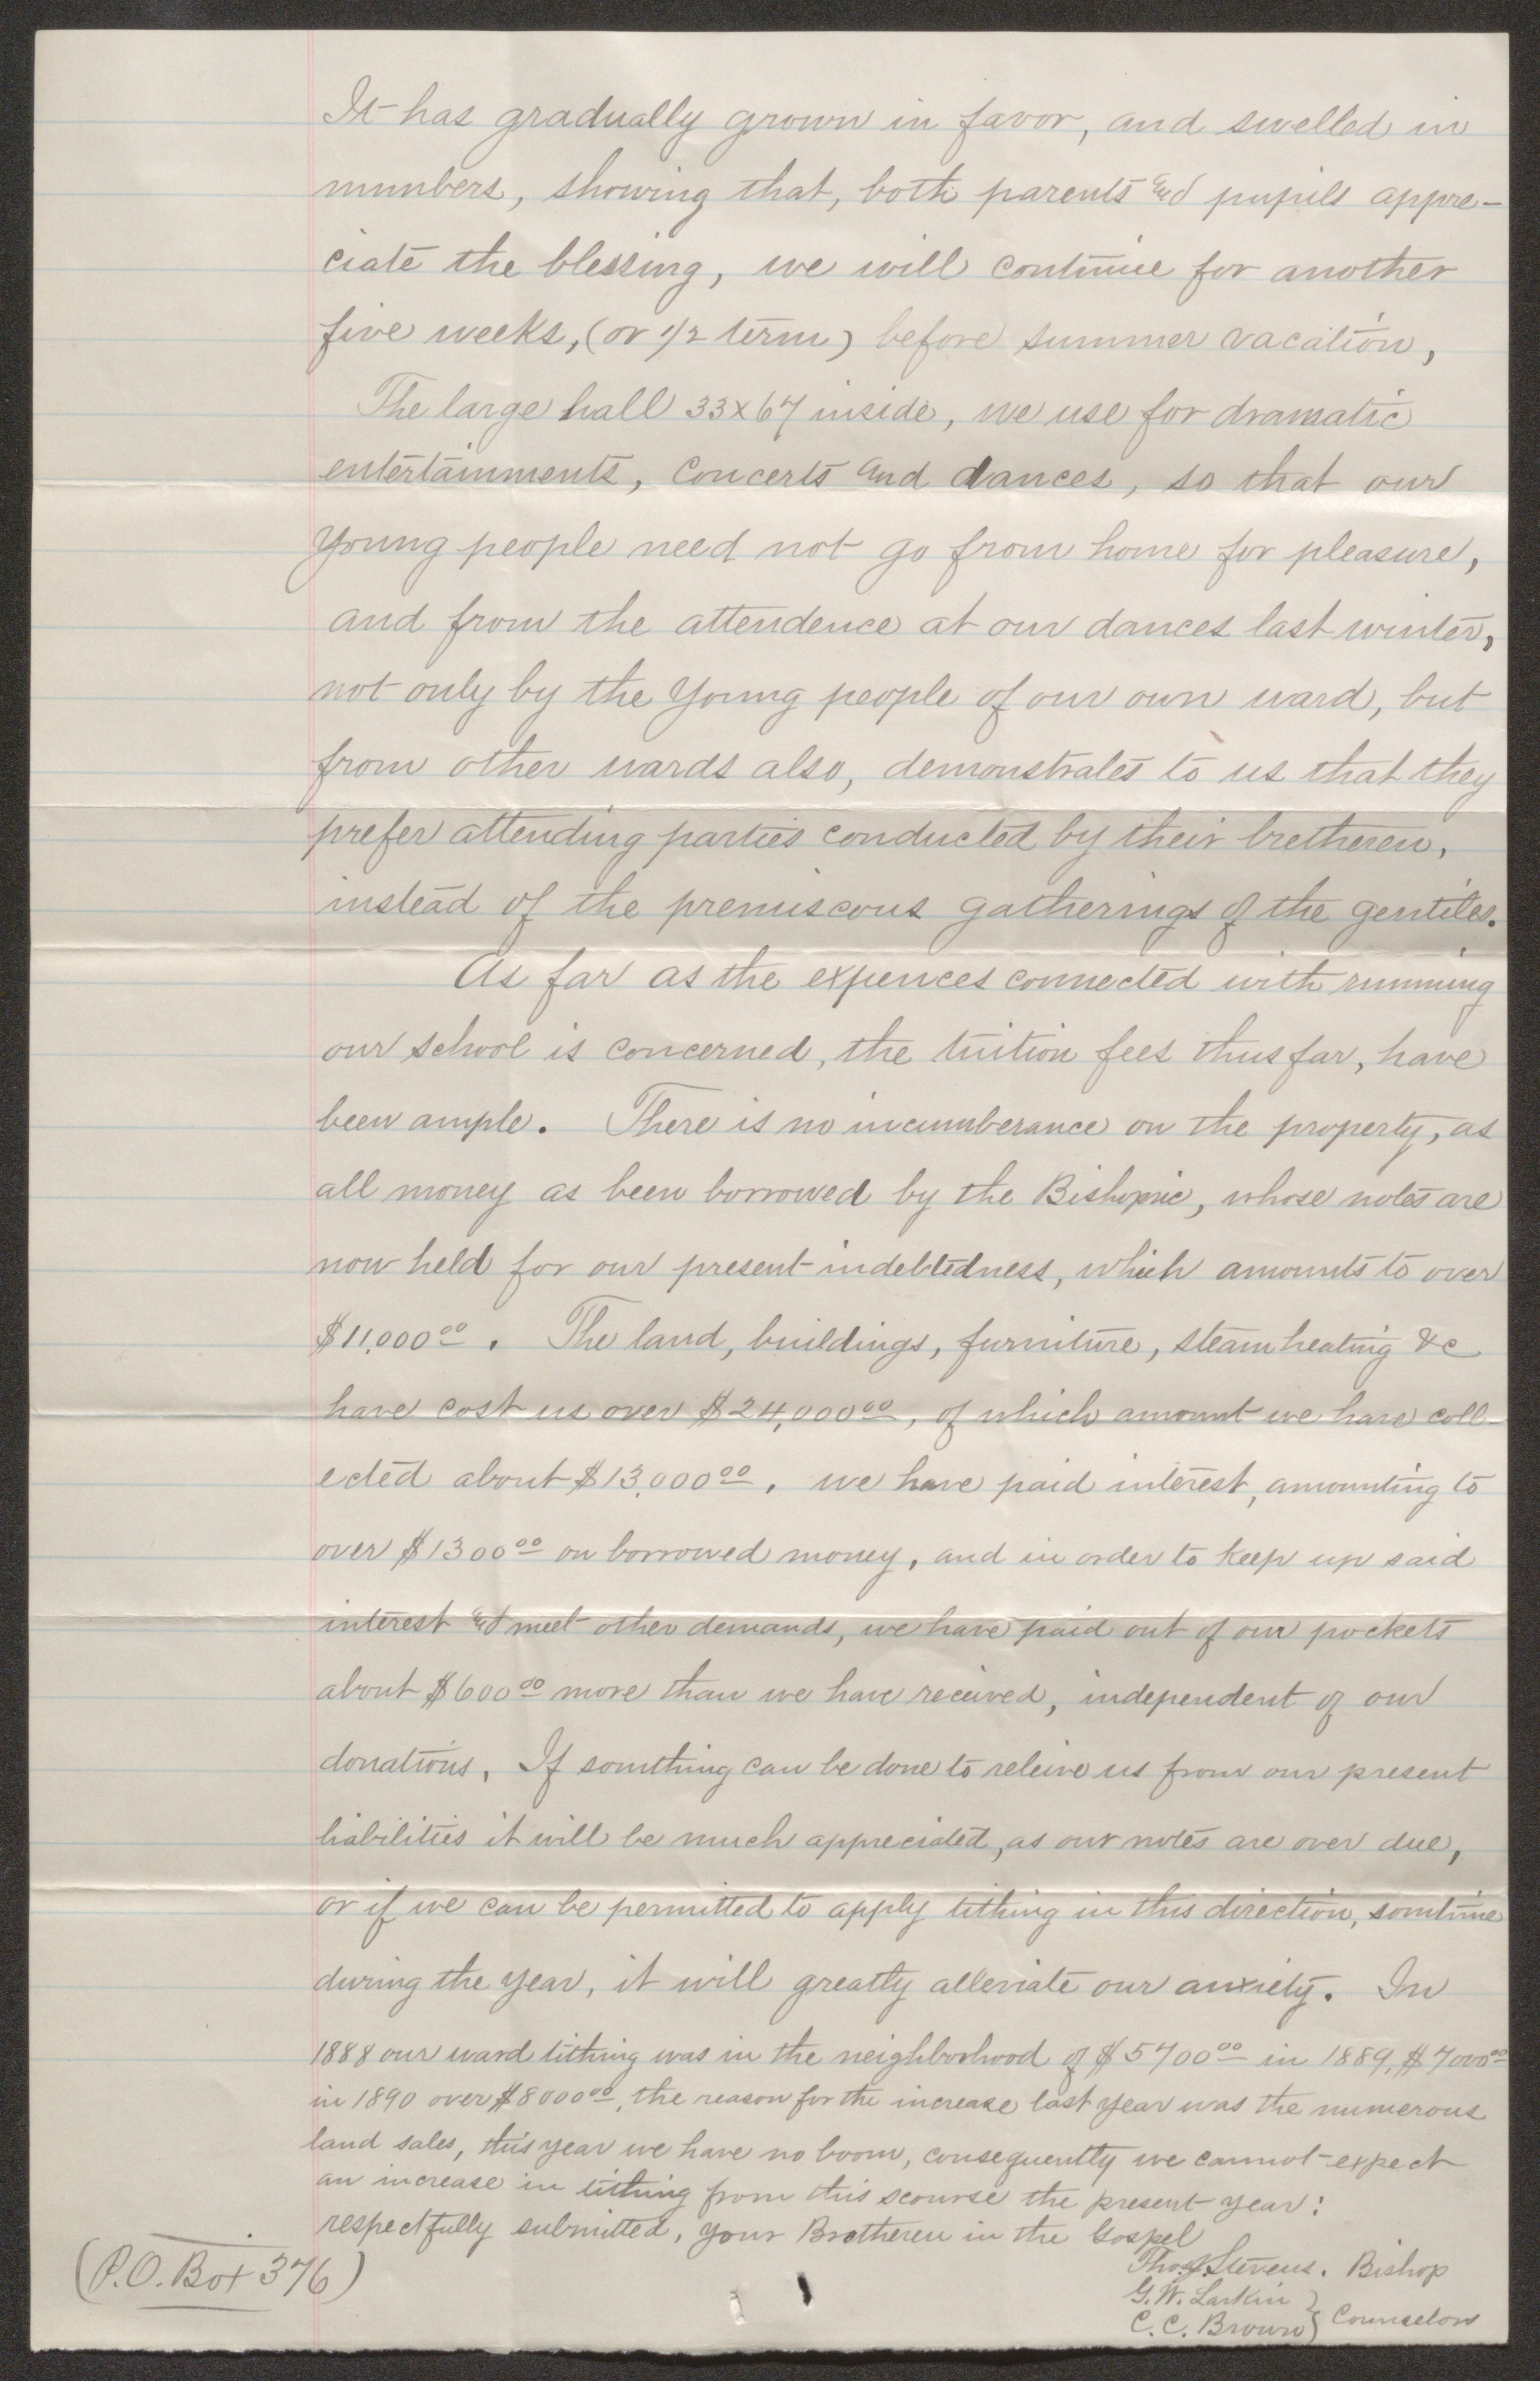 It has gradually grown in favor, and swelled in
numbers, showing that, both parents and pupils appre-
ciate the blessing, we will continue for another
five weeks, (or 1/2 term) before summer vacation,
The large hall 33x67 inside, we use for dramatic
entertainments, Concerts and dances, so that our
Young people need not go from home for pleasure,
and from the attendence at our dances last winter,
not only by the Young people of our own ward, but
from other wards also, demonstrates to us that they
prefer attending parties conducted by their bretheren,
instead of the premiscous gatherings of the gentiles.
As far as the expences connected with running
our school is concerned, the tuition fees thus far, have
been ample. There is no incumberance on the property, as
all money as been borrowed by the Bishopric, whose notes are
now held for our present indebtedness, which amounts to over
$11,000 00. The land, buildings, furniture, steam heating &c
have cost us over $24,000 00, of which amount we have coll-
ected about $13,000 00. we have paid interest, amounting to
over $1300 00 on borrowed money, and in order to keep up said
interest and meet other demands, we have paid out of our pockets
about $600 00 more than we have received, independent of our
donations. If somthing can be done to releive us from our present
liabilities it will be much appreciated, as our notes are over due,
or if we can be permitted to apply tithing in this direction, somtime
during the year, it will greatly alleviate our anxiety. In
1888 our ward tithing was in the neighborhood of $5700 00 in 1889, $7000 00
in 1890 over $8000 00, the reason for the increase last year was the numerous
land sales, this year we have no boom, consequently we cannot expect
an increase in tithing from this scourse the present year:
respectfully submitted, your Bretheren in the Gospel
Thos J. Stevens. Bishop
G. W. Larkin
C. C. Brown } Counselors
(P.O. Box 376)